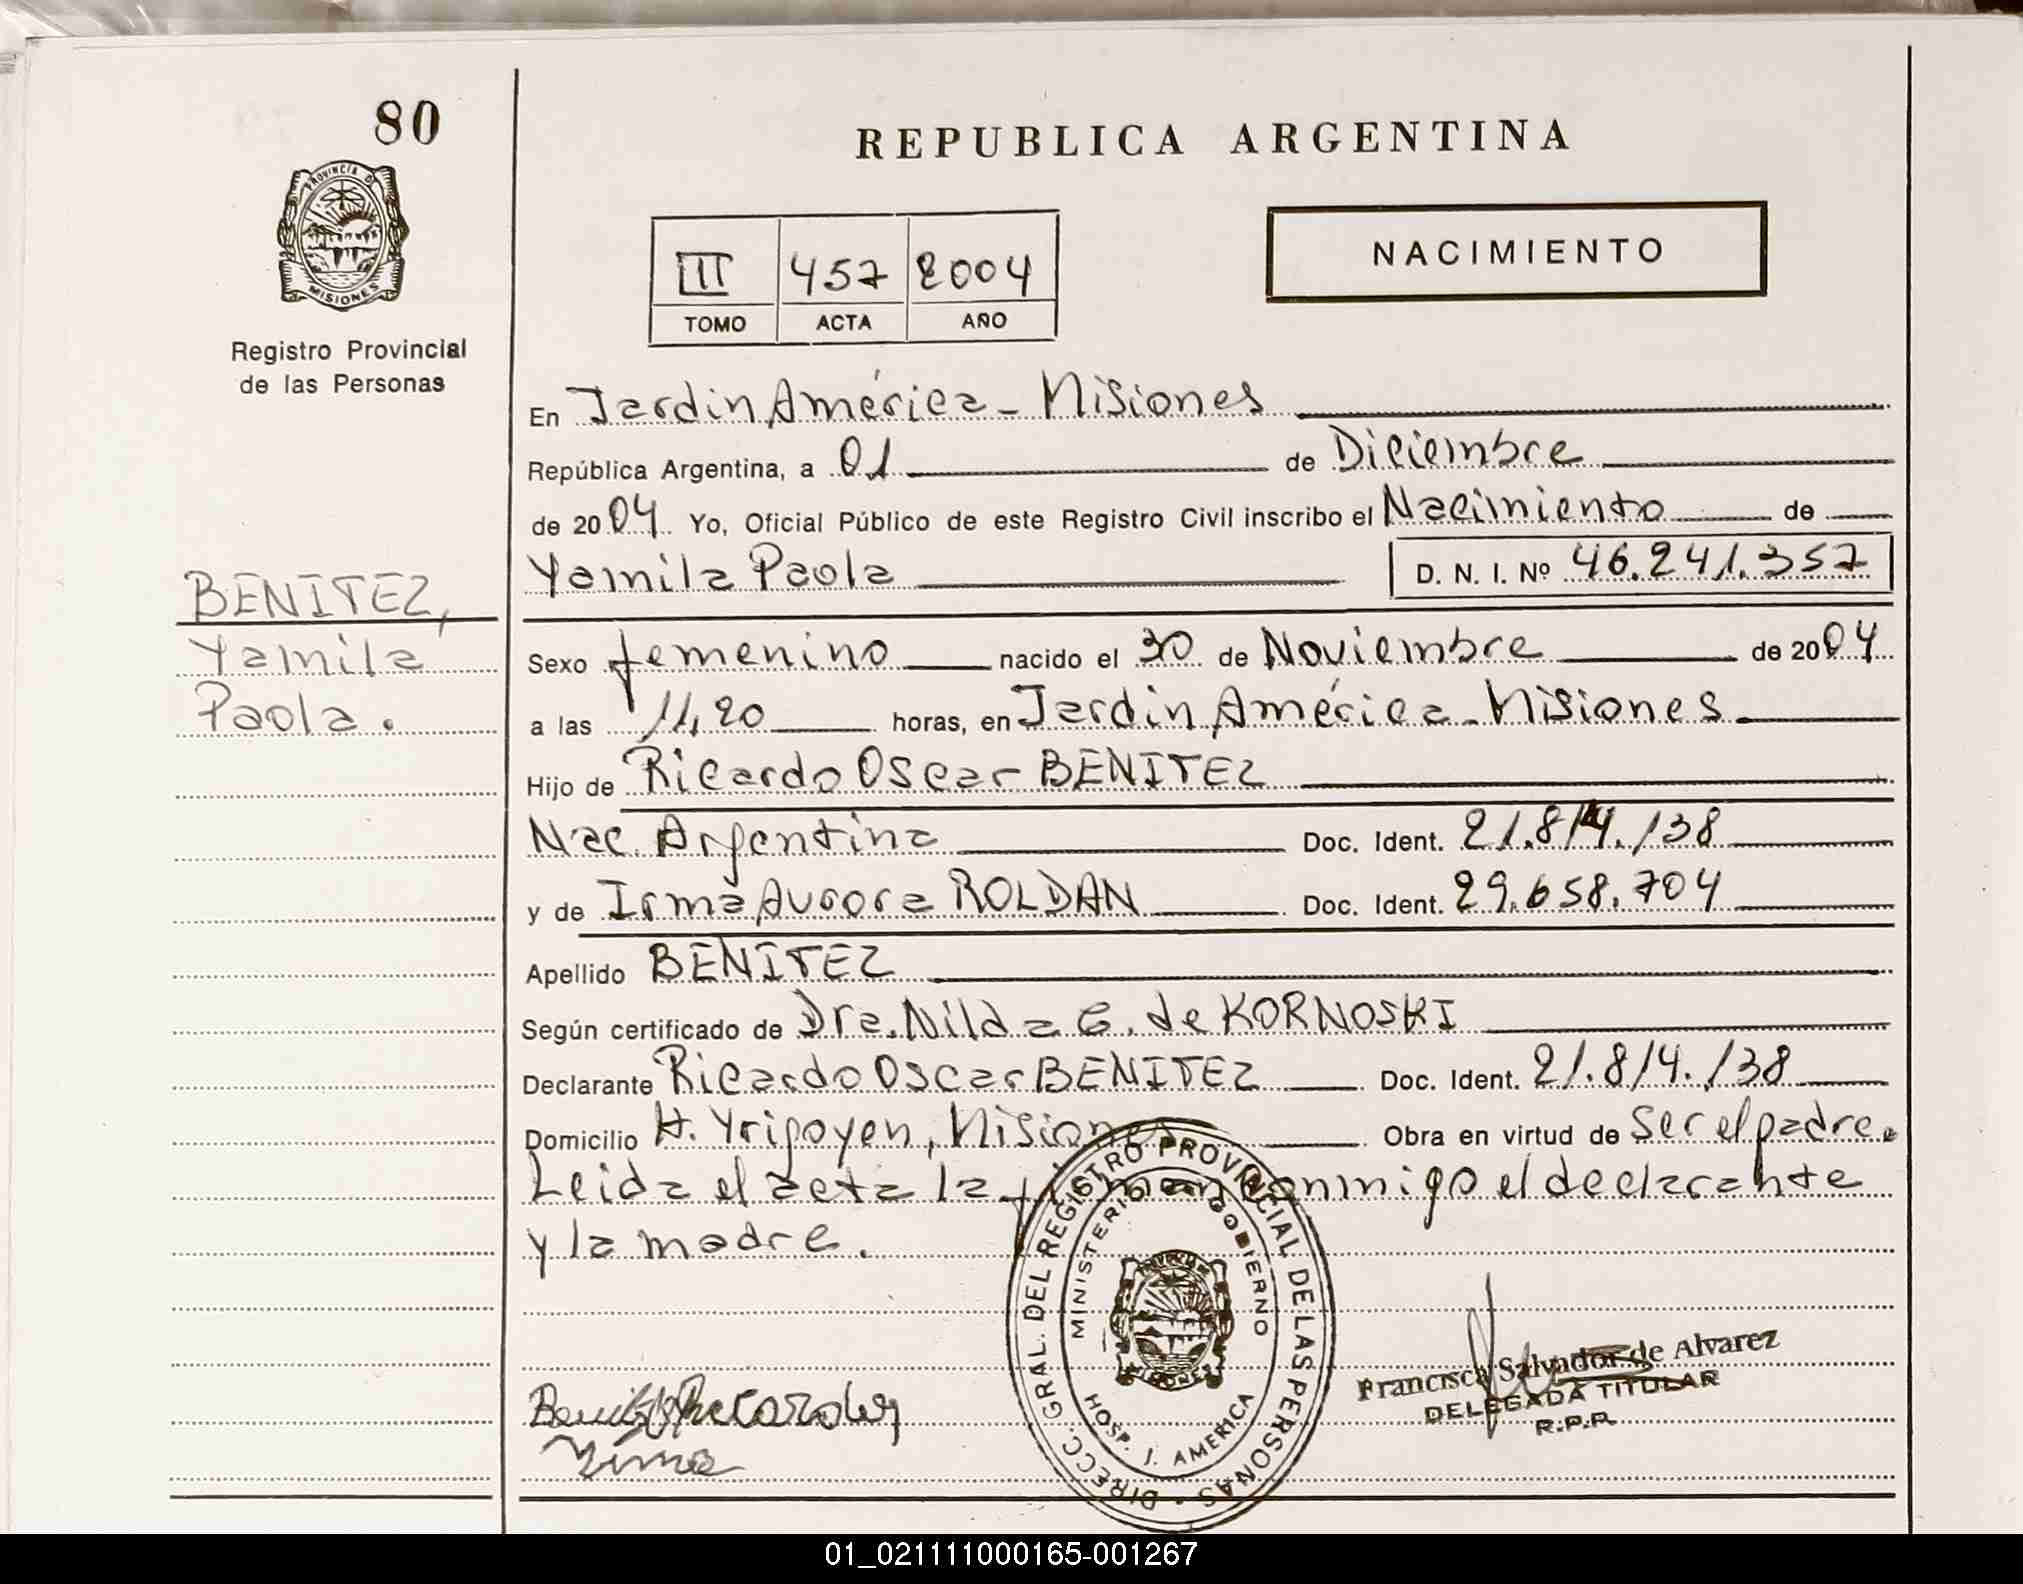 80
REPUBLICA ARGENTINA
PROVINCIA DE
MISIONES
Registro Provincial
de las Personas
III 457 2004
TOMO ACTA AÑO
NACIMIENTO
En Jardin América - Misiones
República Argentina, a 01 de Diciembre
de 2004 Yo, Oficial Público de este Registro Civil inscribo el Nacimiento de
Yamila Paola D. N. I. Nº 46.241.357
BENITEZ,
Yamila
Paola.
Sexo femenino nacido el 30 de Noviembre de 2004
a las 11,20 horas, en Jardin América - Misiones
Hijo de Ricardo Oscar BENITEZ
Nac. Argentina Doc. Ident. 21.814.138
y de Irma Aurora ROLDAN Doc. Ident. 29.658.704
Apellido BENITEZ
Según certificado de Dra. Nilda G. de KORNOSKI
Declarante Ricardo Oscar BENITEZ Doc. Ident. 21.814.138
Domicilio H. Yrigoyen, Misiones Obra en virtud de ser el padre.
Leida el acta la firman conmigo el declarante
y la madre.
DIRECC. GRAL. DEL REGISTRO PROVINCIAL DE LAS PERSONAS
MINISTERIO DE GOBIERNO
MISIONES
HOSP. J. AMERICA
Francisca Salvador de Alvarez
DELEGADA TITULAR
R.P.P.
01_021111000165-001267